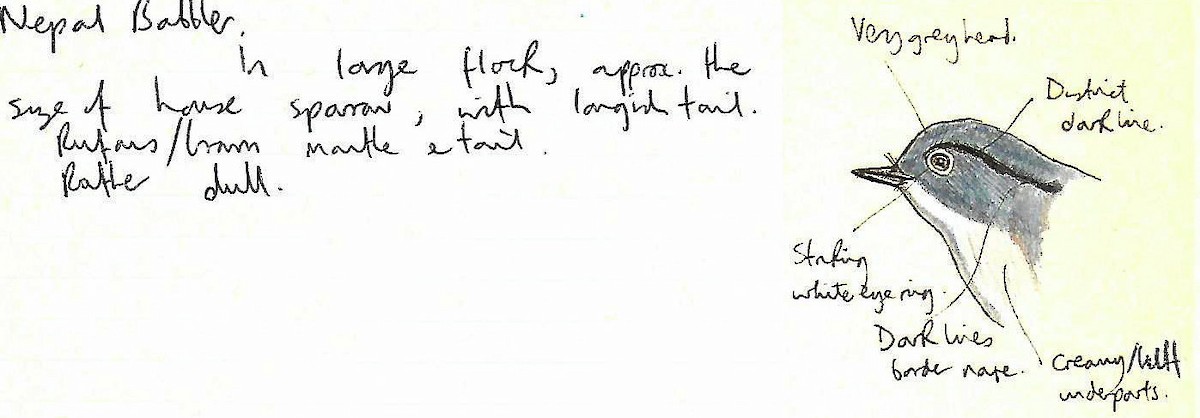 Nepal Babbler.
In large flock, approx. the
size of house sparrow, with longish tail.
Rufous/brown mantle & tail.
Rather dull.
Very grey head.
Distinct
dark line.
Striking
white eye ring.
Dark lines
border nape.
Creamy/buff
underparts.